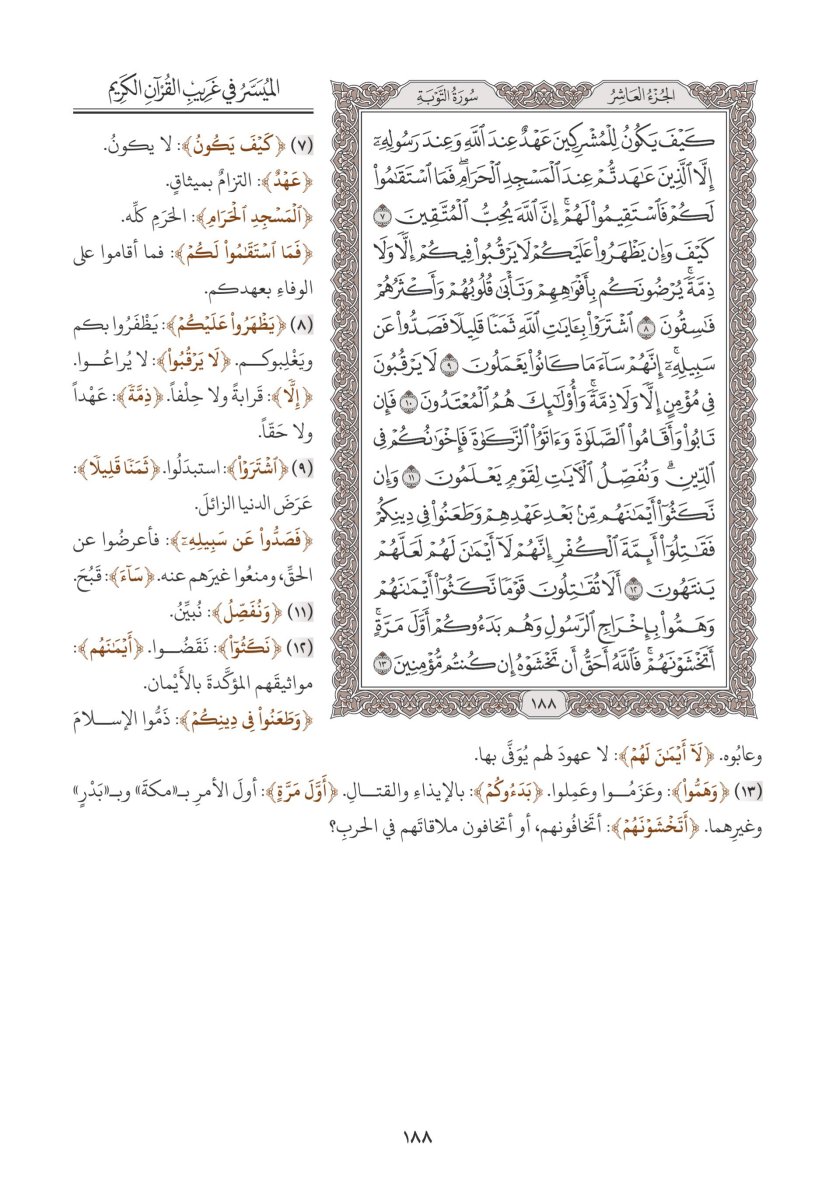 المُيَسَّرُ في غَرِيبِ القُرْآنِ الكَرِيم
الجُزْءُ العَاشِرُ
سُورَةُ التَّوْبَةِ
كَيْفَ يَكُونُ لِلْمُشْرِكِينَ عَهْدٌ عِندَ ٱللَّهِ وَعِندَ رَسُولِهِۦٓ
إِلَّا ٱلَّذِينَ عَٰهَدتُّمْ عِندَ ٱلْمَسْجِدِ ٱلْحَرَامِ ۖ فَمَا ٱسْتَقَٰمُوا۟
لَكُمْ فَٱسْتَقِيمُوا۟ لَهُمْ ۚ إِنَّ ٱللَّهَ يُحِبُّ ٱلْمُتَّقِينَ ٧
كَيْفَ وَإِن يَظْهَرُوا۟ عَلَيْكُمْ لَا يَرْقُبُوا۟ فِيكُمْ إِلًّا وَلَا
ذِمَّةً ۚ يُرْضُونَكُم بِأَفْوَٰهِهِمْ وَتَأْبَىٰ قُلُوبُهُمْ وَأَكْثَرُهُمْ
فَٰسِقُونَ ٨ ٱشْتَرَوْا۟ بِـَٔايَٰتِ ٱللَّهِ ثَمَنًا قَلِيلًا فَصَدُّوا۟ عَن
سَبِيلِهِۦٓ ۚ إِنَّهُمْ سَآءَ مَا كَانُوا۟ يَعْمَلُونَ ٩ لَا يَرْقُبُونَ
فِى مُؤْمِنٍ إِلًّا وَلَا ذِمَّةً ۚ وَأُو۟لَٰٓئِكَ هُمُ ٱلْمُعْتَدُونَ ١٠ فَإِن
تَابُوا۟ وَأَقَامُوا۟ ٱلصَّلَوٰةَ وَءَاتَوُا۟ ٱلزَّكَوٰةَ فَإِخْوَٰنُكُمْ فِى
ٱلدِّينِ ۗ وَنُفَصِّلُ ٱلْـَٔايَٰتِ لِقَوْمٍ يَعْلَمُونَ ١١ وَإِن
نَّكَثُوٓا۟ أَيْمَٰنَهُم مِّنۢ بَعْدِ عَهْدِهِمْ وَطَعَنُوا۟ فِى دِينِكُمْ
فَقَٰتِلُوٓا۟ أَئِمَّةَ ٱلْكُفْرِ ۙ إِنَّهُمْ لَآ أَيْمَٰنَ لَهُمْ لَعَلَّهُمْ
يَنتَهُونَ ١٢ أَلَا تُقَٰتِلُونَ قَوْمًا نَّكَثُوٓا۟ أَيْمَٰنَهُمْ
وَهَمُّوا۟ بِإِخْرَاجِ ٱلرَّسُولِ وَهُم بَدَءُوكُمْ أَوَّلَ مَرَّةٍ ۚ
أَتَخْشَوْنَهُمْ ۚ فَٱللَّهُ أَحَقُّ أَن تَخْشَوْهُ إِن كُنتُم مُّؤْمِنِينَ ١٣
١٨٨
(٧) ﴿كَيْفَ يَكُونُ﴾: لا يكونُ.
﴿عَهْدٌ﴾: التزامٌ بميثاقٍ.
﴿ٱلْمَسْجِدِ ٱلْحَرَامِ﴾: الحَرَمِ كلِّه.
﴿فَمَا ٱسْتَقَٰمُوا۟ لَكُمْ﴾: فما أقاموا على
الوفاءِ بعهدكم.
(٨) ﴿يَظْهَرُوا۟ عَلَيْكُمْ﴾: يَظْفَرُوا بكم
ويَغْلِبوكم. ﴿لَا يَرْقُبُوا۟﴾: لا يُراعُوا.
﴿إِلًّا﴾: قرابةً ولا حِلْفاً. ﴿ذِمَّةً﴾: عَهْداً
ولا حَقّاً.
(٩) ﴿ٱشْتَرَوْا۟﴾: استبدَلُوا. ﴿ثَمَنًا قَلِيلًا﴾:
عَرَضَ الدنيا الزائلَ.
﴿فَصَدُّوا۟ عَن سَبِيلِهِۦٓ﴾: فأعرضُوا عن
الحقِّ، ومنعُوا غيرَهم عنه. ﴿سَآءَ﴾: قَبُحَ.
(١١) ﴿وَنُفَصِّلُ﴾: نُبيِّنُ.
(١٢) ﴿نَّكَثُوٓا۟﴾: نَقَضُوا. ﴿أَيْمَٰنَهُم﴾:
مواثيقَهم المؤكَّدةَ بالأَيْمان.
﴿وَطَعَنُوا۟ فِى دِينِكُمْ﴾: ذَمُّوا الإسلامَ
وعابُوه. ﴿لَآ أَيْمَٰنَ لَهُمْ﴾: لا عهودَ لهم يُوَفَّى بها.
(١٣) ﴿وَهَمُّوا۟﴾: وعَزَمُوا وعَمِلوا. ﴿بَدَءُوكُمْ﴾: بالإيذاءِ والقتالِ. ﴿أَوَّلَ مَرَّةٍ﴾: أولَ الأمرِ بـ«مكةَ» وبـ«بَدْرٍ»
وغيرِهما. ﴿أَتَخْشَوْنَهُمْ﴾: أتخافُونهم، أو أتخافون ملاقاتَهم في الحربِ؟
١٨٨